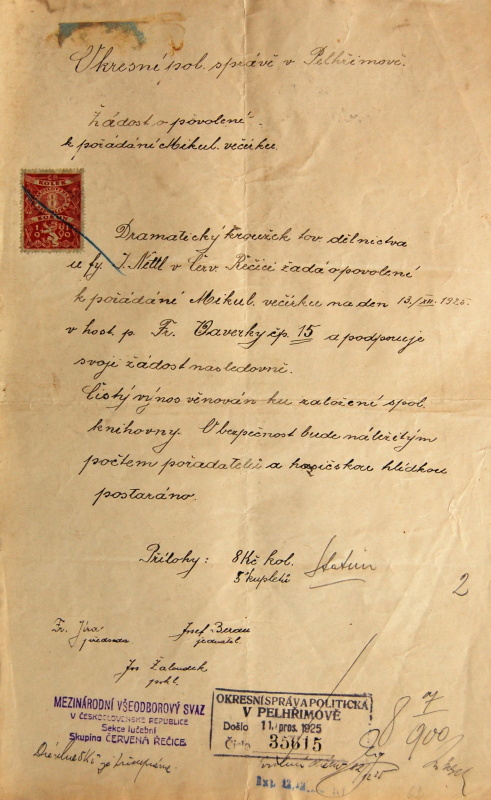 Okresní pol. správě v Pelhřimově.
Žádost o povolení
k pořádání Mikul. večírku.
KOLEK
1
KORUNA
19 00
Dramatický kroužek tov. dělnictva
u fy. J. Nettl v Červ. Řečici žádá o povolení
k pořádání Mikul. večírku na den 13./XII. 1925
v host. p. Fr. Vaverky čp. 15 a podporuje
svoji žádost nasledovně.
Čistý výnos věnován ku založení spol.
knihovny. O bezpečnost bude náležitým
počtem pořadatelů a hasičskou hlídkou
postaráno.
Přílohy: 8 Kč kol. Statim
3 kupletů
2
Fr. Jíra
předseda
Josef Beran
jednatel
Jos Žaloudek
pokl.
MEZINÁRODNÍ VŠEODBOROVÝ SVAZ
V ČESKOSLOVENSKÉ REPUBLICE
Sekce lučební
Skupina ČERVENÁ ŘEČICE
OKRESNÍ SPRÁVA POLITICKÁ
V PELHŘIMOVĚ
Došlo 11. pros. 1925
Číslo 35615
8 7
900